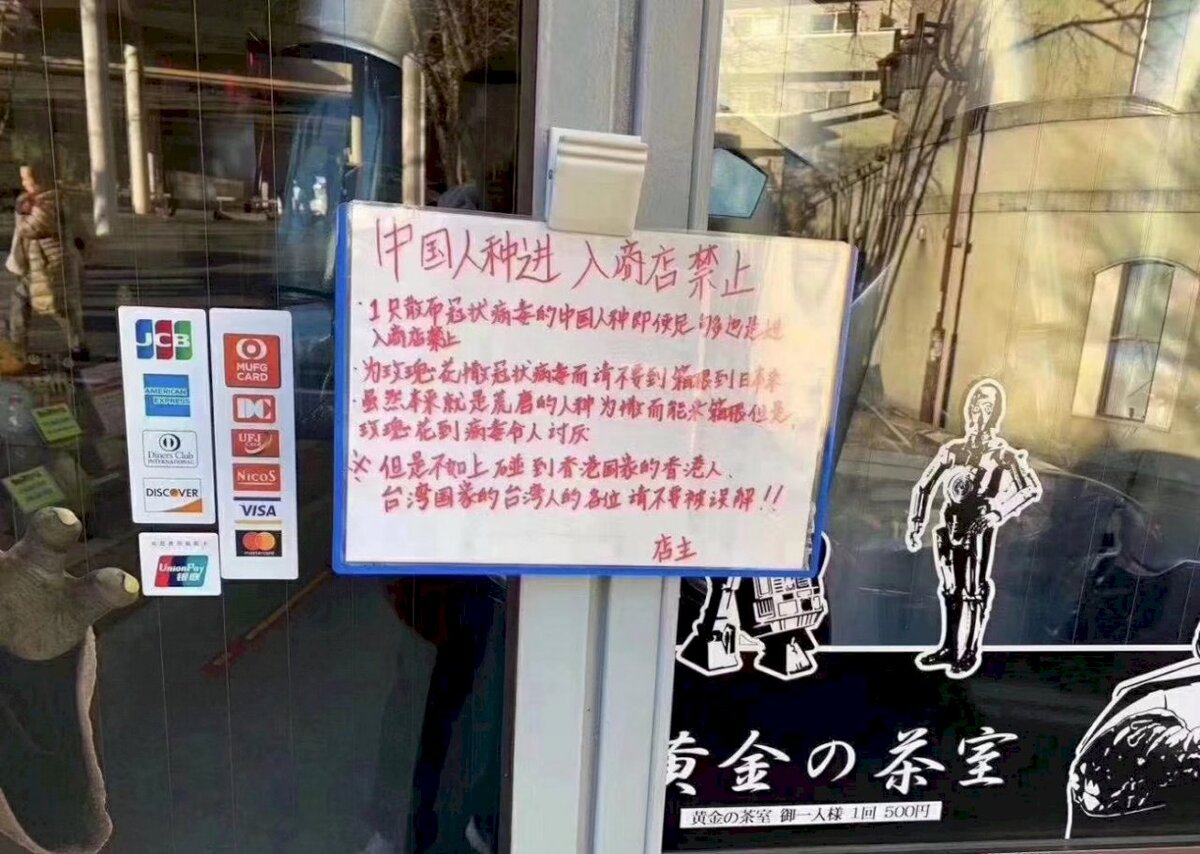 中国人种进 入商店禁止
・1只散布冠状病毒的中国人种即便是 也是进
入商店禁止
・为玫瑰花撒冠状病毒而请不要到箱根到日本来
・虽然本来就是荒磨的人种为撒而能来箱根但是,
玫瑰花到病毒令人讨厌
※但是不如上碰到香港国家的香港人、
台湾国家的台湾人的各位请不要被误解!!
店主
JCB
AMERICAN EXPRESS
Diners Club
INTERNATIONAL
DISCOVER
UnionPay
银联
MUFG
CARD
DC
UFJ
Card
NICOS
VISA
mastercard
黄金の茶室
黄金の茶室 御一人様 1回 500円